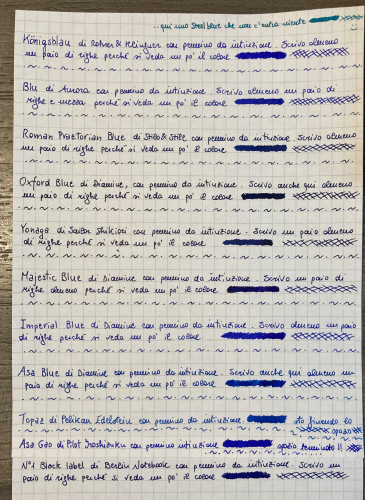 ..qui uno Steel blue che non c'entra niente
Königsblau di Rohrer & Klingner con pennino da intinzione. Scrivo almeno
un paio di righe perché si veda un po' il colore
Blu di Aurora con pennino da intinzione. Scrivo almeno un paio di
righe e mezza perché si veda un po' il colore
Roman Praetorian Blue di Stilo & Stile con pennino da intinzione. Scrivo almeno
un paio di righe perché si veda un po' il colore
Oxford Blue di Diamine, con pennino da intinzione. Scrivo anche qui almeno
un paio di righe perché si veda un po' il colore
Yonaga di Sailor Shikiori con pennino da intinzione. Scrivo un paio almeno
di righe perché si veda un po' il colore
Majestic Blue di Diamine con pennino da intinzione. Scrivo un paio di
righe almeno perché si veda un po' il colore
Imperial Blue di Diamine con pennino da intinzione. Scrivo almeno un paio
di righe perché si veda un po' il colore
Asa Blue di Diamine con pennino da intinzione. Scrivo anche qui almeno un
paio di righe perché si veda un po' il colore
Topaz di Pelikan Edelstein con pennino da intinzione sto finendo lo
spazio
Asa Gao di Pilot Iroshizuku con pennino intinzione spazio terminato!!
N°1 Black label di Berlin Notebook con pennino da intinzione. Scrivo un
paio di righe perché si veda un po' il colore